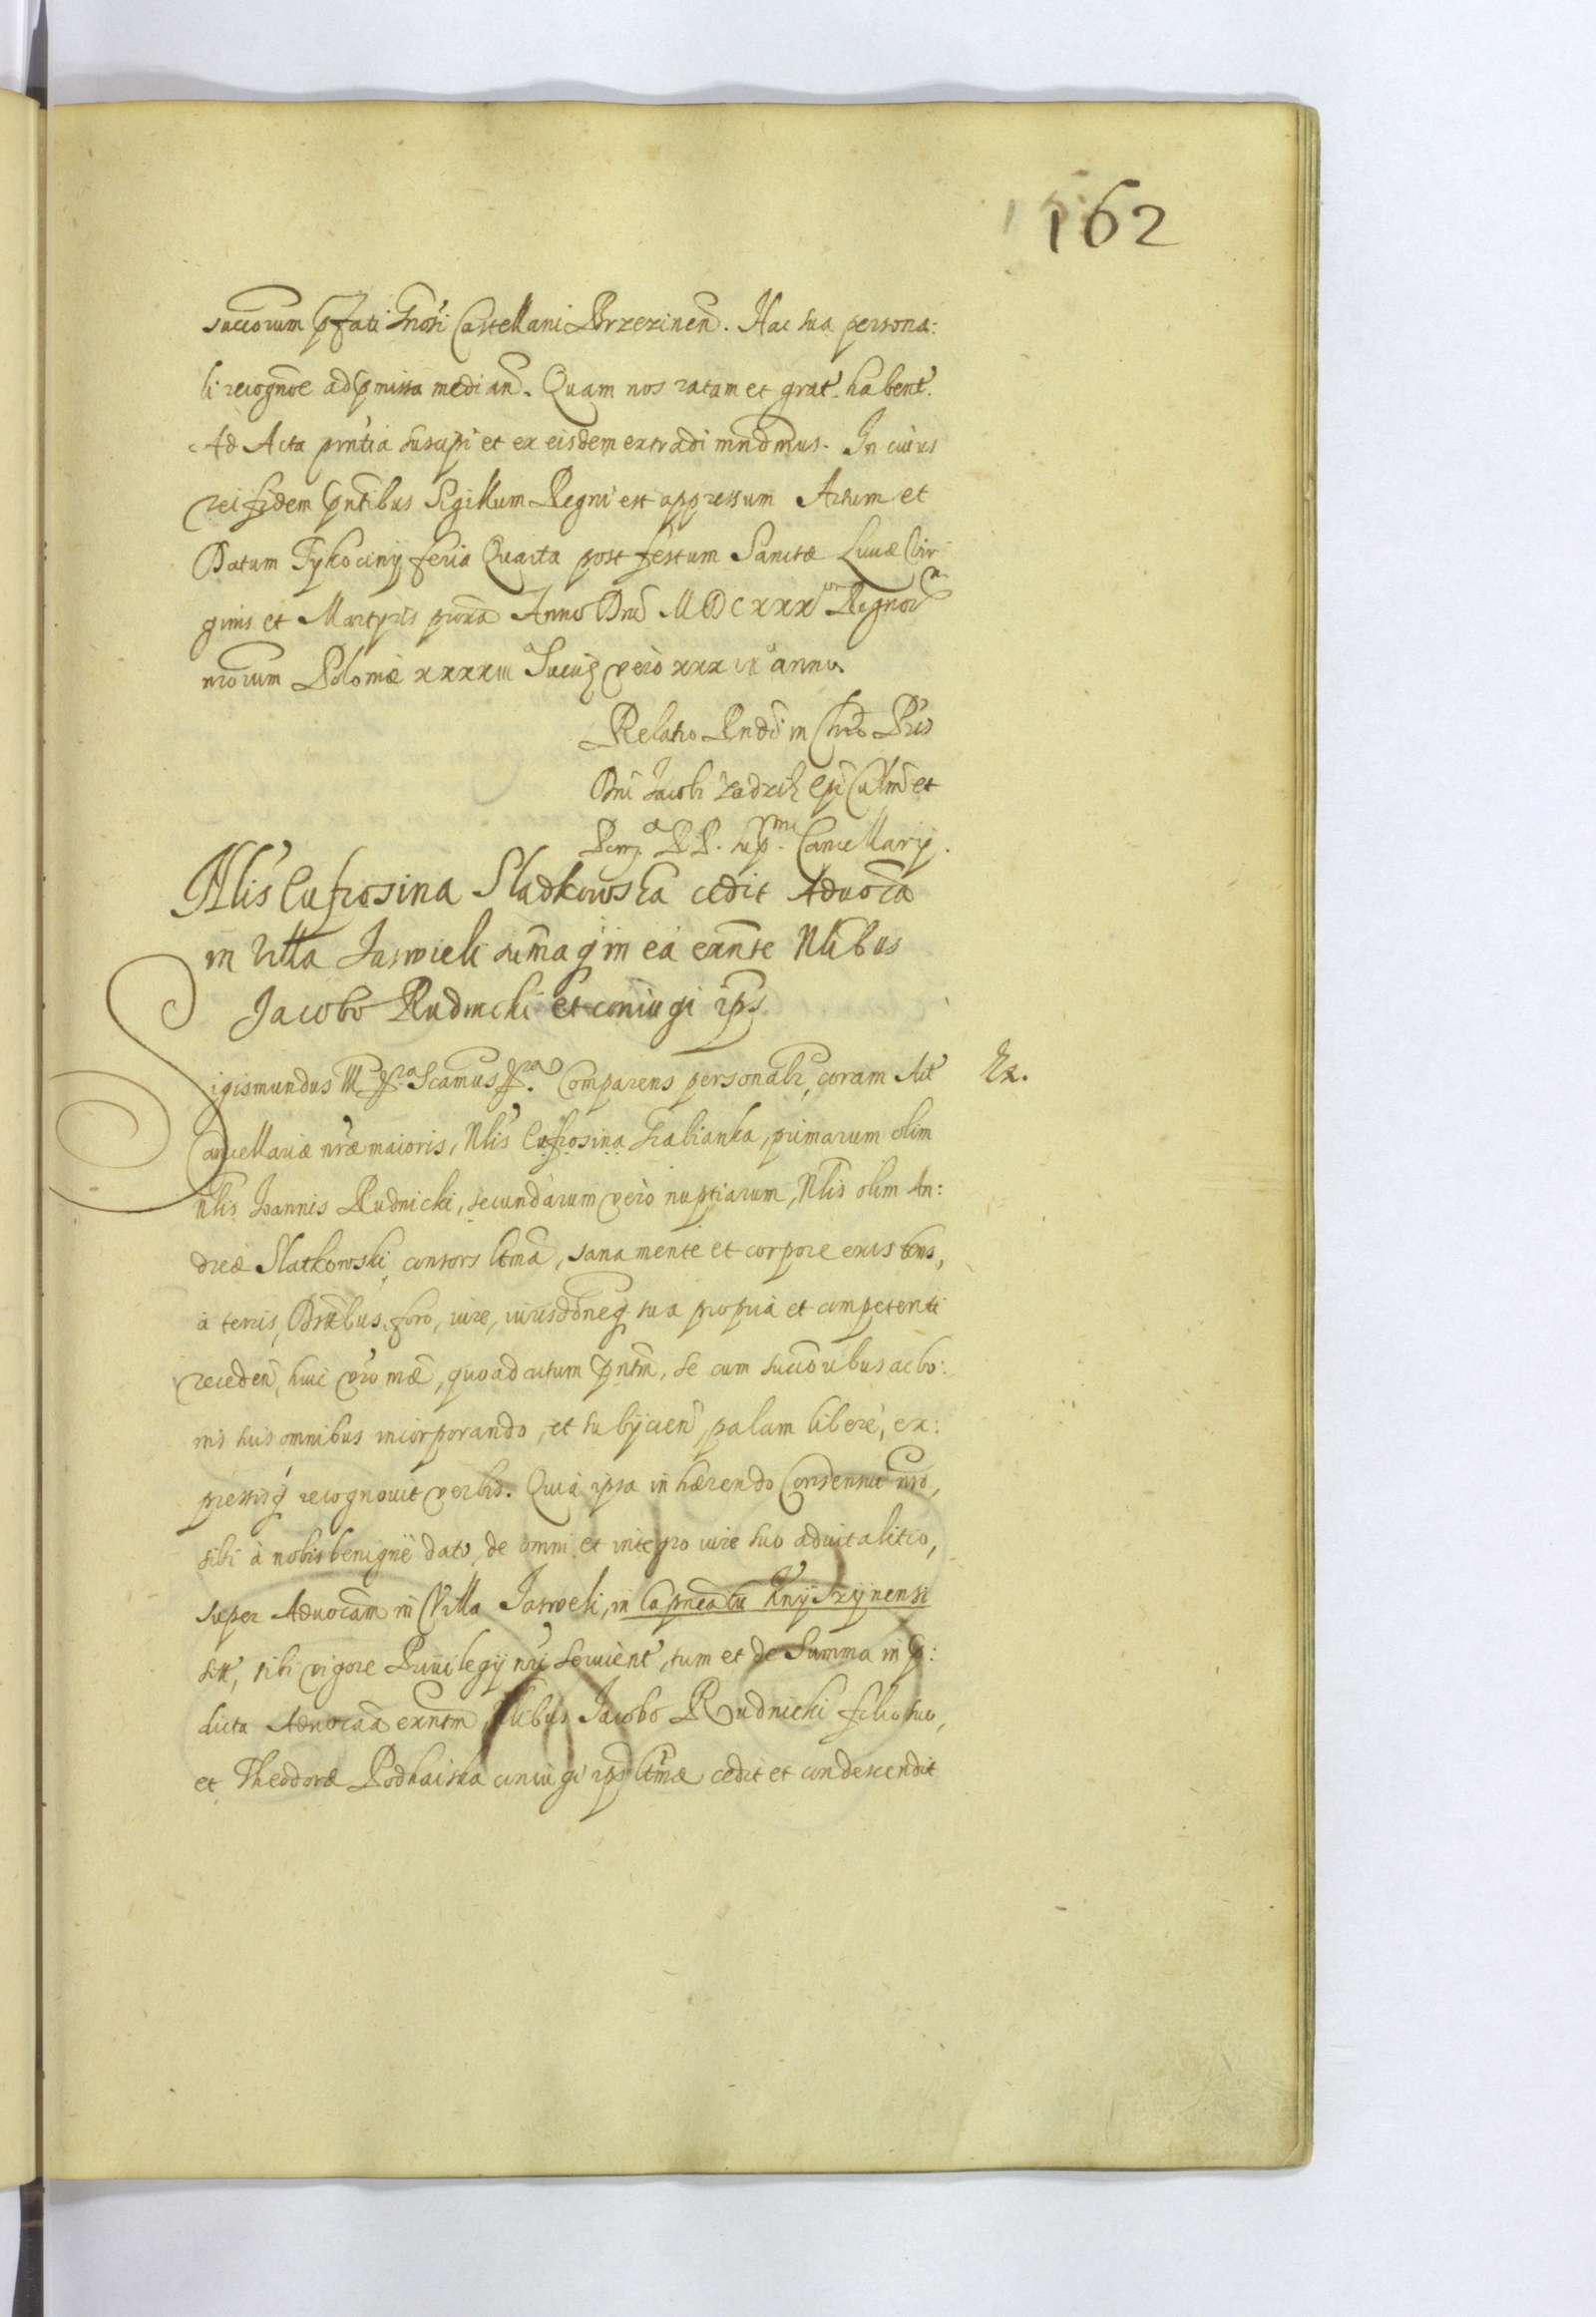 162
succorum pfati Gnosi Castellani Brzezinen. Hac sua persona:
li recognoe ad pmissa median. Quam nos ratam et grat. habent.
Ad Acta pntia suscipi et ex eisdem extradi mndmus. In cuius
rei fidem pntibus Sigillum Regni est appressum Actum et
Datum Tykociny feria Quarta post festum Sanctæ Luciæ Vir
ginis et Martyris Anno Dni MDCXXX Regnor
nrorum Poloniæ xxxxiii Sueciæ vero xxx anno.
Relatio Rndi in Chro Pris
Dni Jacobi Zadzik Epi Culmen et
Pom. RP. sup. Cancellarij.
Nlis Eufrosina Sladkowska cedit Aduocia
in Villa Jaswieli sumaq in ea exnte Nlibus
Jacobo Rudnicki et coniugi ips
Sigismundus III gra Scamus gra. Comparens personalr, coram Act Ex.
Cancellariæ nræ maioris, Nlis Eufrosina Grabianka, primarum olim
nlis Joannis Rudnicki, secundarum vero nuptiarum, Nlis olim An:
dreæ Slatkowski consors ltma, sana mente et corpore existens,
à terris, Dsttbus, foro, iure, iurisdoneq sua propria et competenti
receden, huic vero næ, quoad actum pntm, se cum succoribus ac bo:
nis suis omnibus incorporando, et subijcien, palam libere, ex:
pressisq recognouit verbis. Quia ipsa inhærendo Consensui nro,
sibi à nobis benignè dato, de omni et integro iure suo aduitalitio,
super Aduocam in Villa Jaswieli, in Capneatu Knyszynensi
sitt, sibi vigore Priuilegij nri seruient, tum et de Summa in p:
dicta Aduocaa exntem, Nlibus Jacobo Rudnicki filio suo,
et Theodoræ Podhaiska coniugi ips ltmæ cedit et condescendit